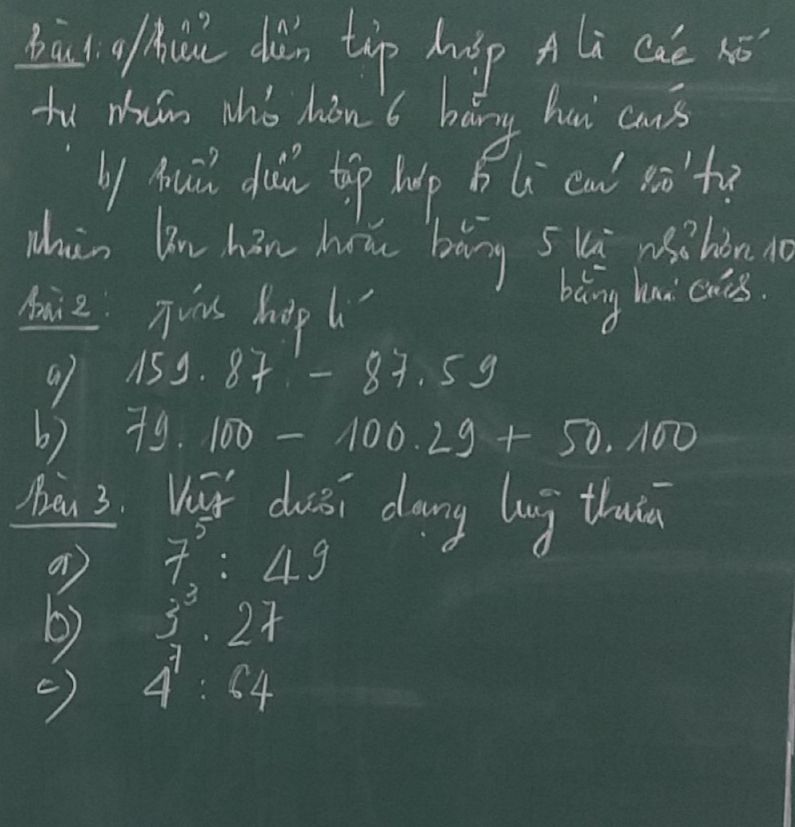 Bài 1: a/ Biểu diễn tập hợp A là các số
tự nhiên nhỏ hơn 6 bằng hai cách
b/ Biểu diễn tập hợp B là các số tự
nhiên lớn hơn hoặc bằng 5 và nhỏ hơn 10
bằng hai cách.
Bài 2: Tính hợp lí
a) 159.87 - 87.59
b) 79.100 - 100.29 + 50.100
Bài 3. Viết dưới dạng luỹ thừa
a) 7⁵ : 49
b) 3³ . 27
c) 4⁷ : 64